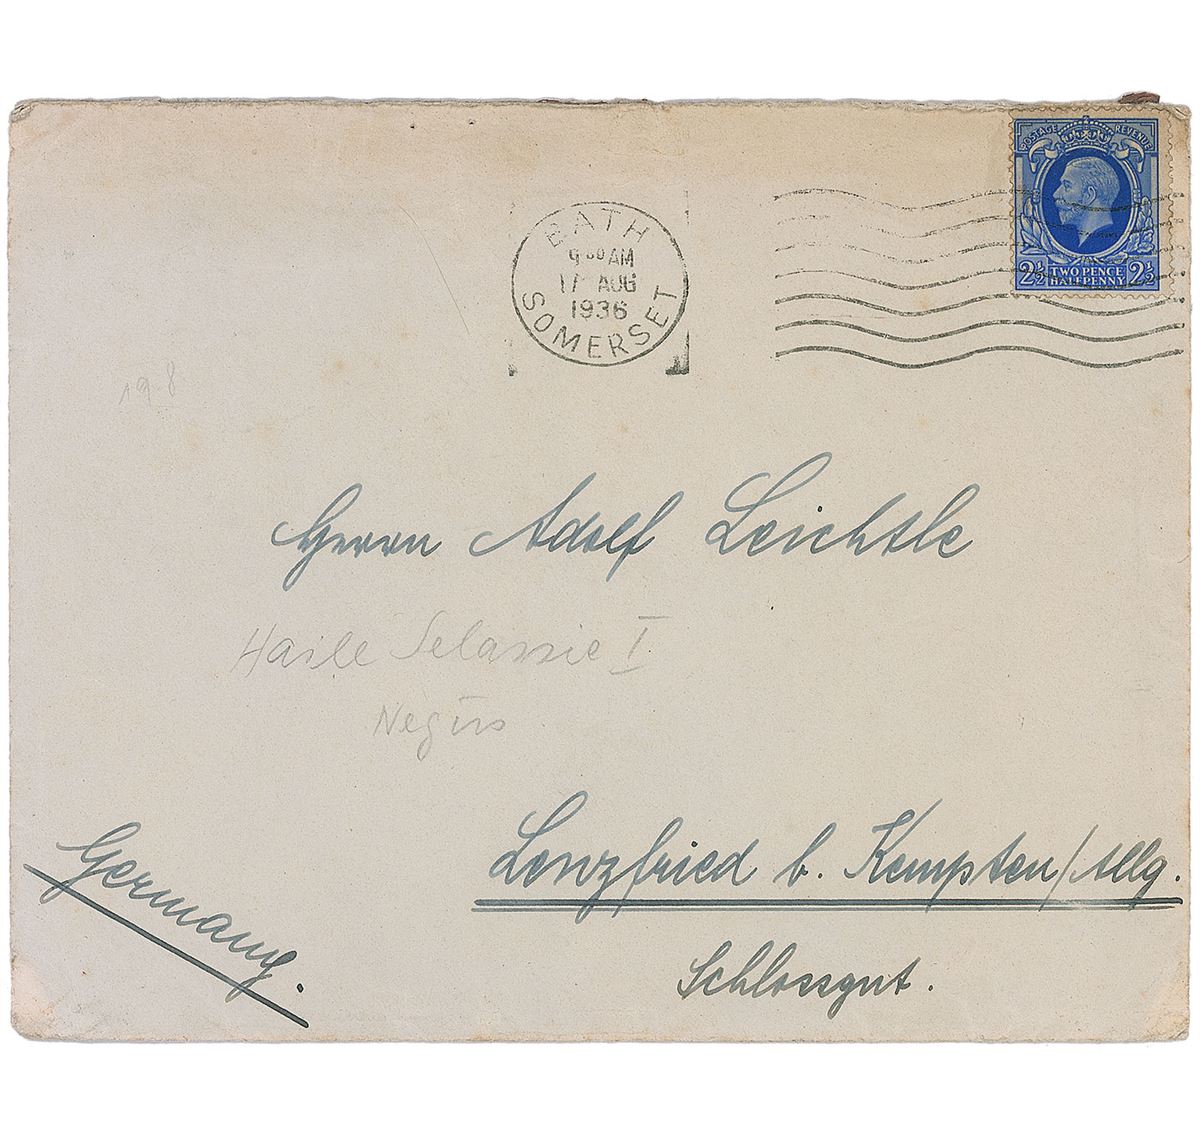 POSTAGE REVENUE
2½ TWO PENCE HALFPENNY 2½
BATH
9 30 AM
17 AUG
1936
SOMERSET
Herrn Adolf Leichtle
Haile Selassie I
Negus
Lenzfried b. Kempten/Allg.
Schlossgut.
Germany.